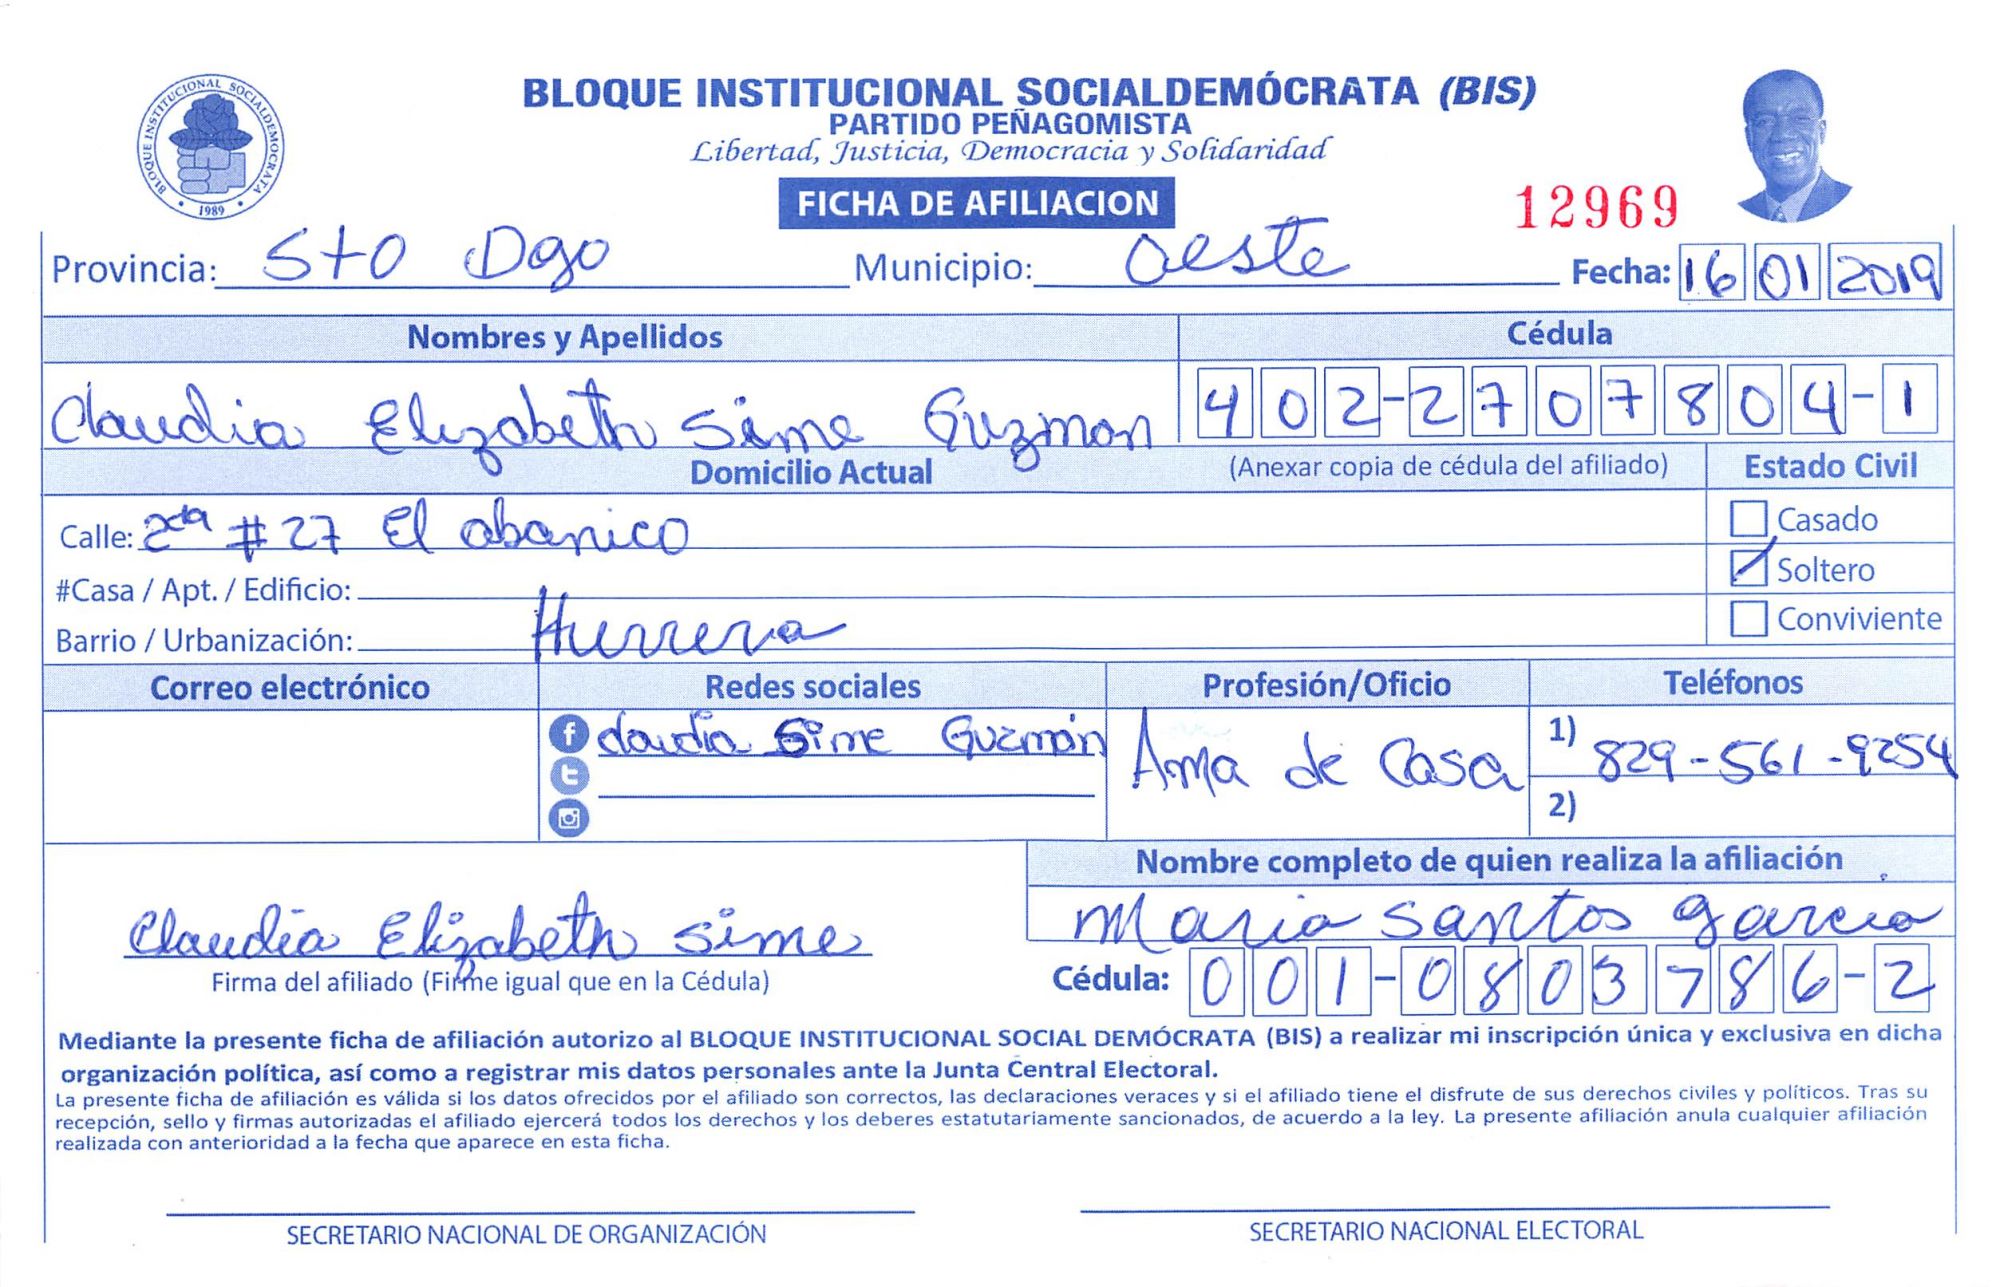 BLOQUE INSTITUCIONAL SOCIALDEMOCRATA
1989
BLOQUE INSTITUCIONAL SOCIALDEMÓCRATA (BIS)
PARTIDO PEÑAGOMISTA
Libertad, Justicia, Democracia y Solidaridad
FICHA DE AFILIACION
12969
Provincia: Sto Dgo Municipio: Oeste Fecha: 16 01 2019
Nombres y Apellidos Cédula
Claudia Elizabeth Sime Guzman 402-2707804-1
Domicilio Actual (Anexar copia de cédula del afiliado) Estado Civil
Calle: 2da #27 El abanico Casado
#Casa / Apt. / Edificio: Soltero
Barrio / Urbanización: Herrera Conviviente
Correo electrónico Redes sociales Profesión/Oficio Teléfonos
Claudia Sime Guzmán Ama de Casa 1) 829-561-9254
2)
Nombre completo de quien realiza la afiliación
Claudia Elizabeth Sime Maria Santos Garcia
Firma del afiliado (Firme igual que en la Cédula) Cédula: 001-0803786-2
Mediante la presente ficha de afiliación autorizo al BLOQUE INSTITUCIONAL SOCIAL DEMÓCRATA (BIS) a realizar mi inscripción única y exclusiva en dicha
organización política, así como a registrar mis datos personales ante la Junta Central Electoral.
La presente ficha de afiliación es válida si los datos ofrecidos por el afiliado son correctos, las declaraciones veraces y si el afiliado tiene el disfrute de sus derechos civiles y políticos. Tras su
recepción, sello y firmas autorizadas el afiliado ejercerá todos los derechos y los deberes estatutariamente sancionados, de acuerdo a la ley. La presente afiliación anula cualquier afiliación
realizada con anterioridad a la fecha que aparece en esta ficha.
SECRETARIO NACIONAL DE ORGANIZACIÓN SECRETARIO NACIONAL ELECTORAL